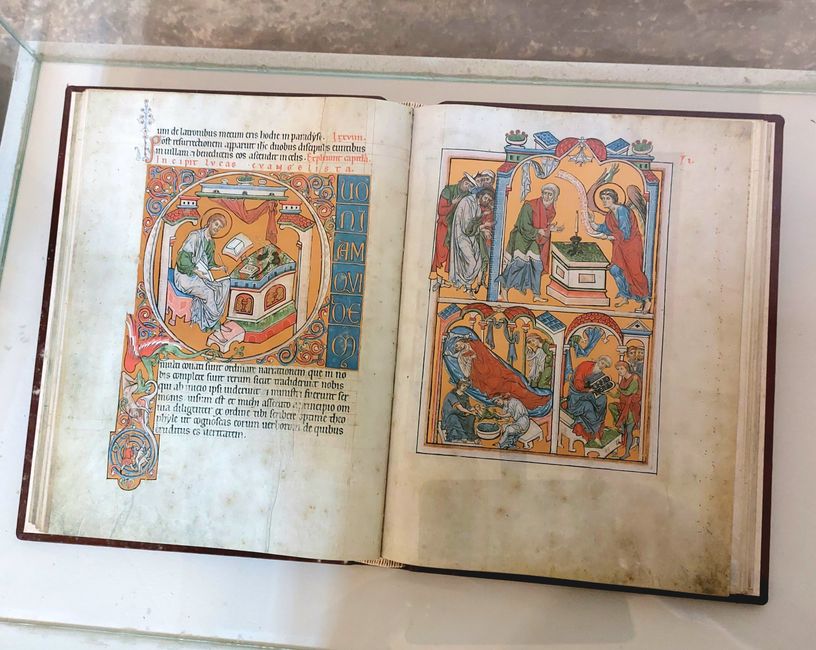 um de latronibus mecum eris hodie in paradyso.
Post resurrectionem apparuit ihc duobus discipulis euntibus
in uillam & benedicens eos ascendit in celis. Expliciunt capitula.
Incipit lucas evangelista.
QUO
NI
AM
QVI
DE
M
multi conati sunt ordinare narrationem que in no
bis complete sunt rerum sicut tradiderunt nobis
qui ab inicio ipsi uiderunt & ministri fuerunt ser
monis. uisum est et michi assecuto a principio om
nia diligenter ex ordine tibi scribere optime theo
phyle ut cognoscas eorum uerborum de quibus
eruditus es ueritatem.